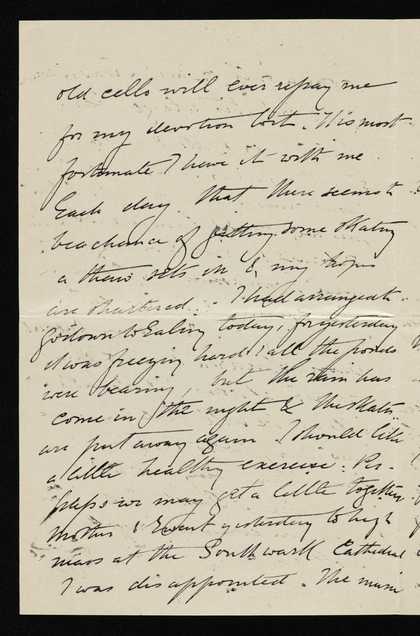 old cells will ever repay me
for my devotion to it. It is most
fortunate I have it with me.
Each day that there seems to
be a chance of getting some skating
a thaw sets in & my hopes
are shattered. - I had arranged to
go down to Ealing today, for yesterday
it was freezing hard & all the ponds
were bearing but the rain has
come in the night & the skates
are put away again. I should like
a little healthy exercise. Per-
haps we may get a little together.
Mother & I went yesterday to high
mass at the Southwark Cathedral
I was disappointed. The music